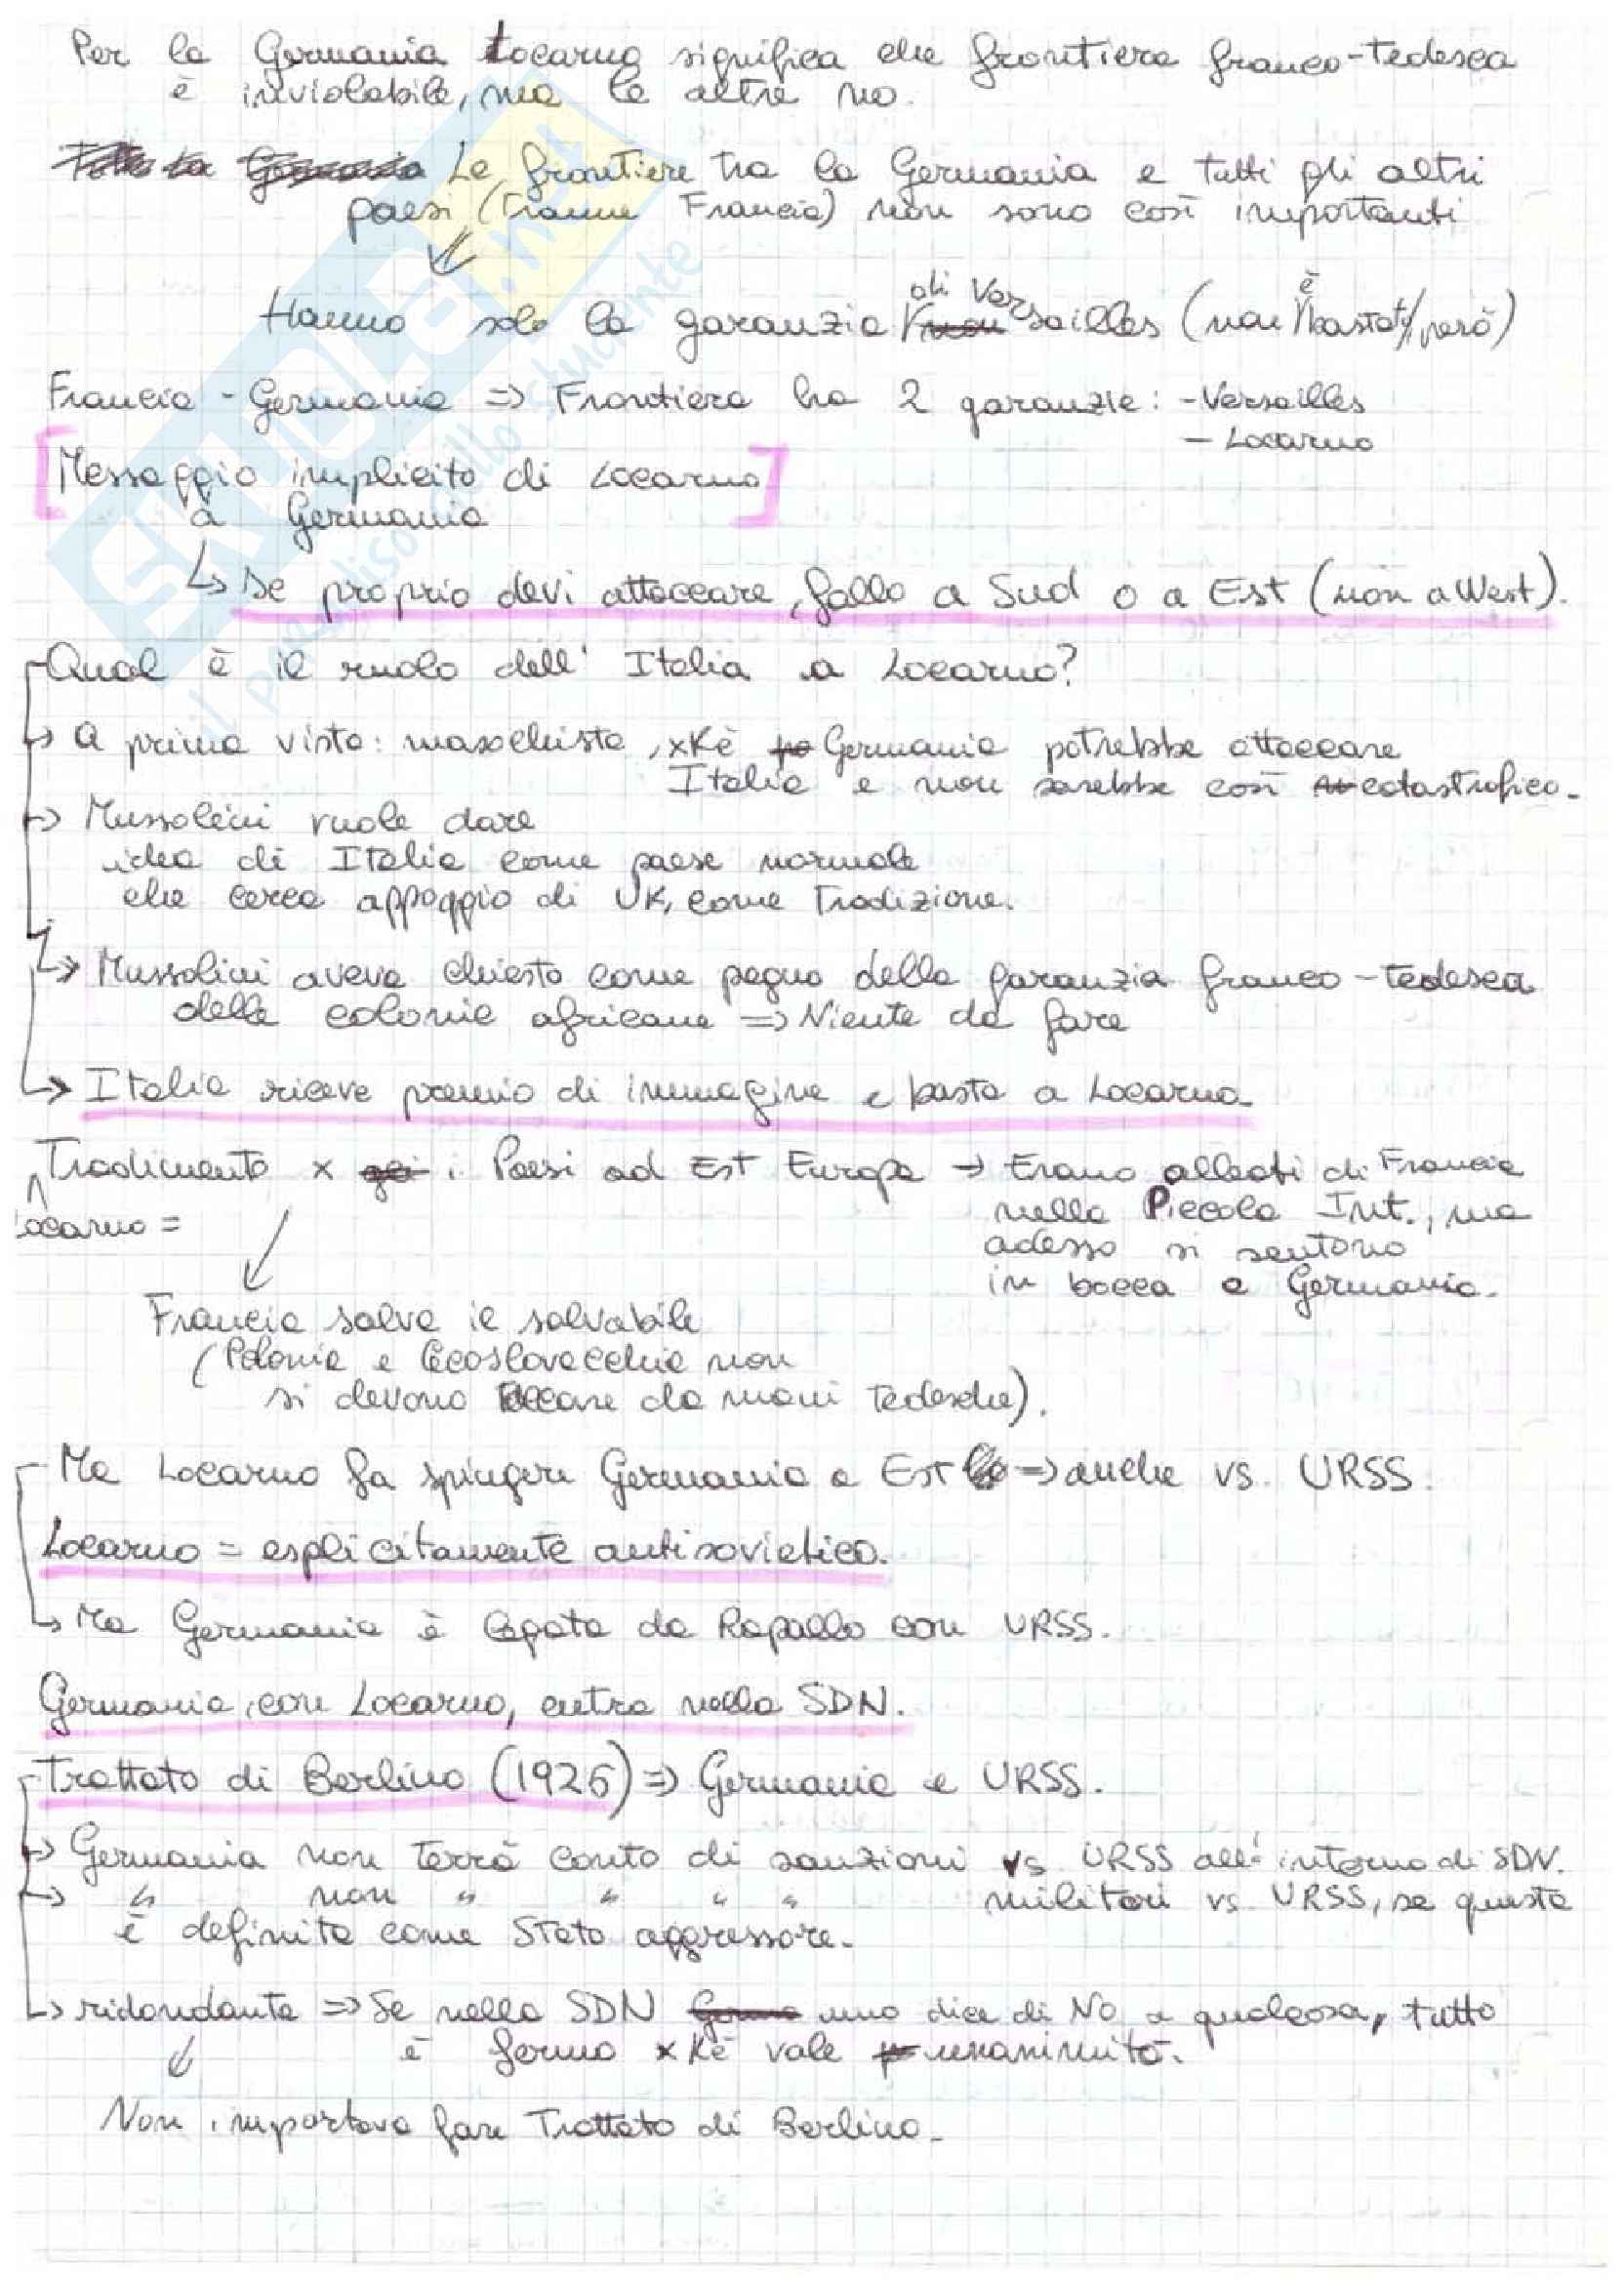 Per la Germania Locarno significa che frontiera franco-tedesca
è inviolabile, ma le altre no.
Le frontiere tra la Germania e tutti gli altri
paesi (tranne Francia) non sono così importanti
Hanno solo la garanzia di Versailles (non è bastata però)
Francia - Germania => Frontiera ha 2 garanzie: - Versailles
- Locarno
[Messaggio implicito di Locarno]
a Germania
↳ Se proprio devi attaccare, fallo a Sud o a Est (non a West).
Qual è il ruolo dell' Italia a Locarno?
→ A prima vista: masochista, xKè Germania potrebbe attaccare
Italia e non sarebbe così catastrofico.
→ Mussolini vuole dare
idea di Italia come paese normale
che cerca appoggio di UK, come tradizione.
↳ Mussolini aveva chiesto come pegno della garanzia franco-tedesca
delle colonie africane => Niente da fare
↳ Italia riceve premio di immagine e basta a Locarno.
Tradimento x i Paesi ad Est Europa → Erano alleati di Francia
nella Piccola Int., ma
Locarno =
adesso si sentono
in bocca a Germania.
Francia salva il salvabile
(Polonia e Cecoslovacchia non
si devono toccare da mani tedesche).
Ma Locarno fa spingere Germania a Est => anche vs. URSS.
Locarno = esplicitamente antisovietico.
↳ Ma Germania è legata da Rapallo con URSS.
Germania, con Locarno, entra nella SDN.
Trattato di Berlino (1926) => Germania e URSS.
→ Germania non terrà conto di sanzioni vs URSS all'interno di SDN.
→ " non " " " " militari vs URSS, se questa
è definita come Stato aggressore.
↳ ridondante => Se nella SDN uno dice di No a qualcosa, tutto
è fermo xKè vale unanimità.
Non importava fare Trattato di Berlino.
SKUOLA.net
il paradiso dello studente